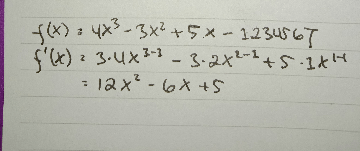 f(x) = 4x³ - 3x² + 5x - 1234567
f'(x) = 3·4x³⁻¹ - 3·2x²⁻¹ + 5·1x¹⁻¹
= 12x² - 6x + 5